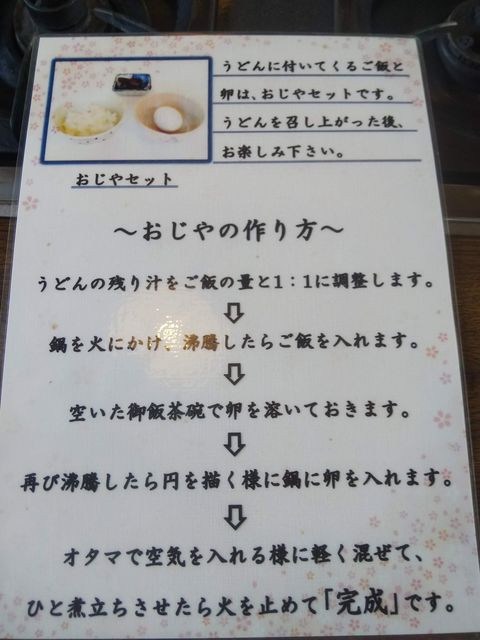 うどんに付いてくるご飯と
卵は、おじやセットです。
うどんを召し上がった後、
お楽しみ下さい。
おじやセット
～おじやの作り方～
うどんの残り汁をご飯の量と1：1に調整します。
⇩
鍋を火にかけ、沸騰したらご飯を入れます。
⇩
空いた御飯茶碗で卵を溶いておきます。
⇩
再び沸騰したら円を描く様に鍋に卵を入れます。
⇩
オタマで空気を入れる様に軽く混ぜて、
ひと煮立ちさせたら火を止めて「完成」です。